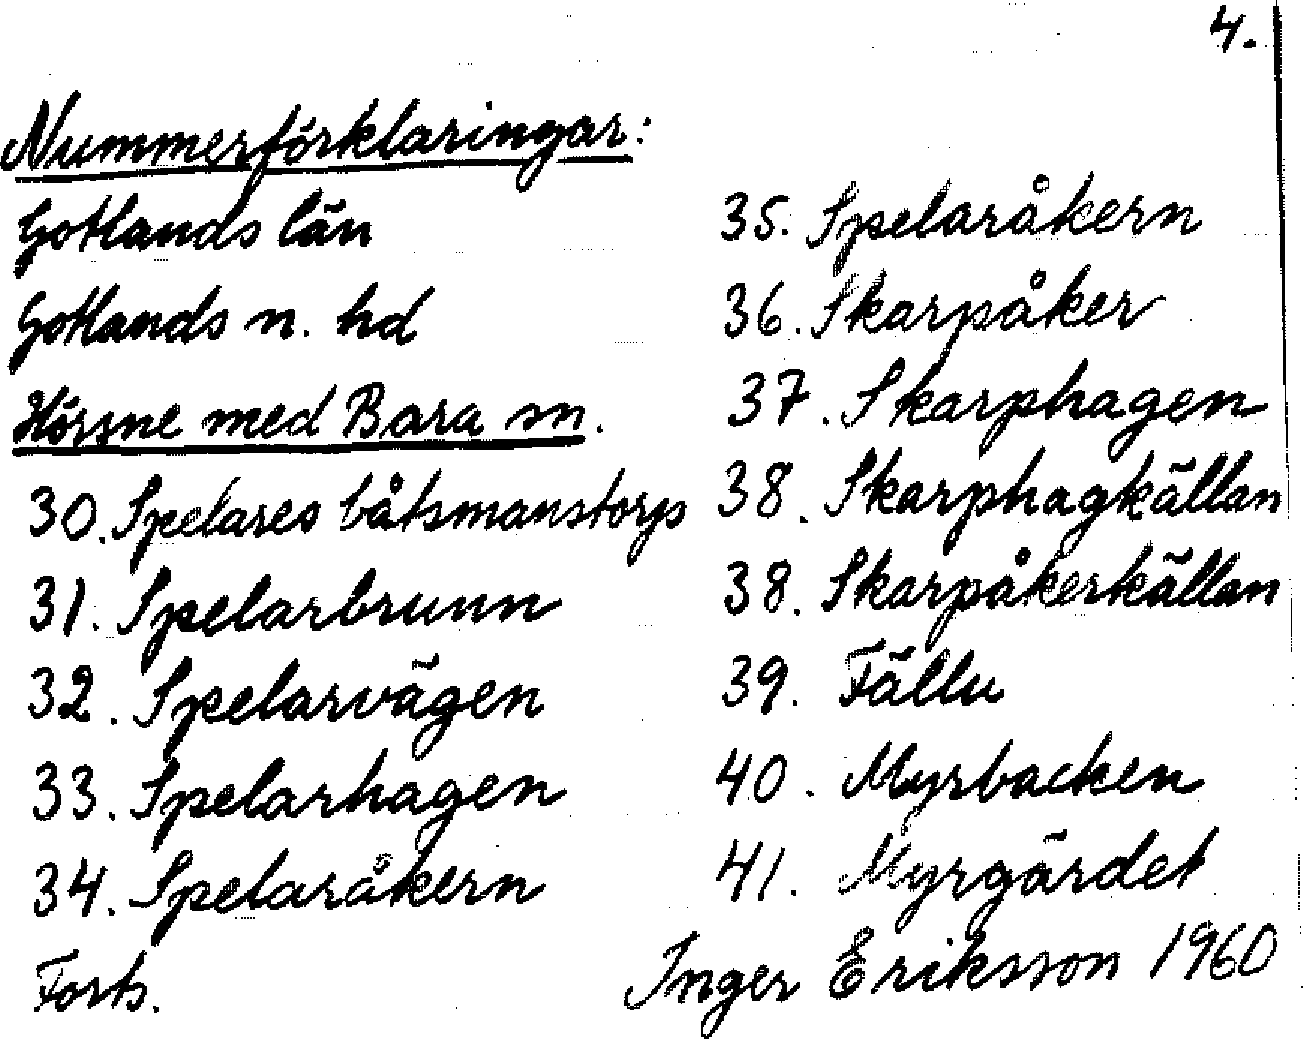 4.
Nummerförklaringar:
Gotlands län
Gotlands n. hd
Hörsne med Bara sn.
30. Spelares båtsmanstorp
31. Spelarbrunn
32. Spelarvägen
33. Spelarhagen
34. Spelaråkern
Forts.
35. Spelaråkern
36. Skarpåker
37. Skarphagen
38. Skarphagkällan
38. Skarpåkerkällan
39. Fällu
40. Myrbacken
41. Myrgärdet
Inger Eriksson 1960